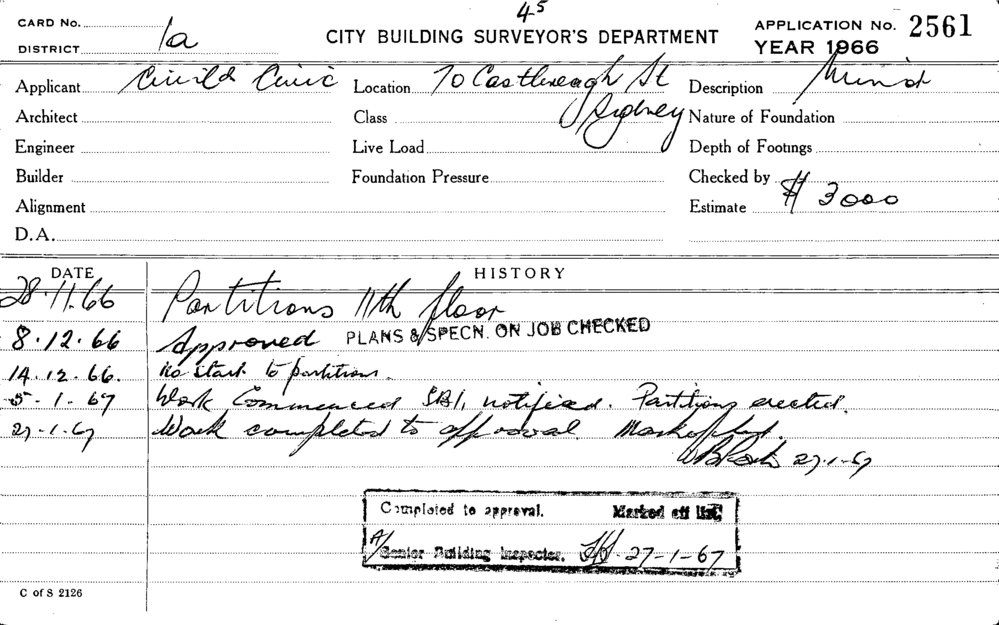 45
CARD No.
DISTRICT 1a
CITY BUILDING SURVEYOR'S DEPARTMENT
APPLICATION No. 2561
YEAR 1966
Applicant Civil & Civic Location 70 Castlereagh St Description Minor
Architect Class Sydney Nature of Foundation
Engineer Live Load Depth of Footings
Builder Foundation Pressure Checked by
Alignment Estimate $ 3000
D.A.
DATE HISTORY
28.11.66 Partitions 11th floor
8.12.66 Approved PLANS & SPECN. ON JOB CHECKED
14.12.66. No start to partitions.
5-1-67 Work Commenced notified. Partitions erected.
27-1-67 Work completed to approval.
27-1-67
Completed to approval. Marked off list
A/Senior Building Inspector. 27-1-67
C of S 2126